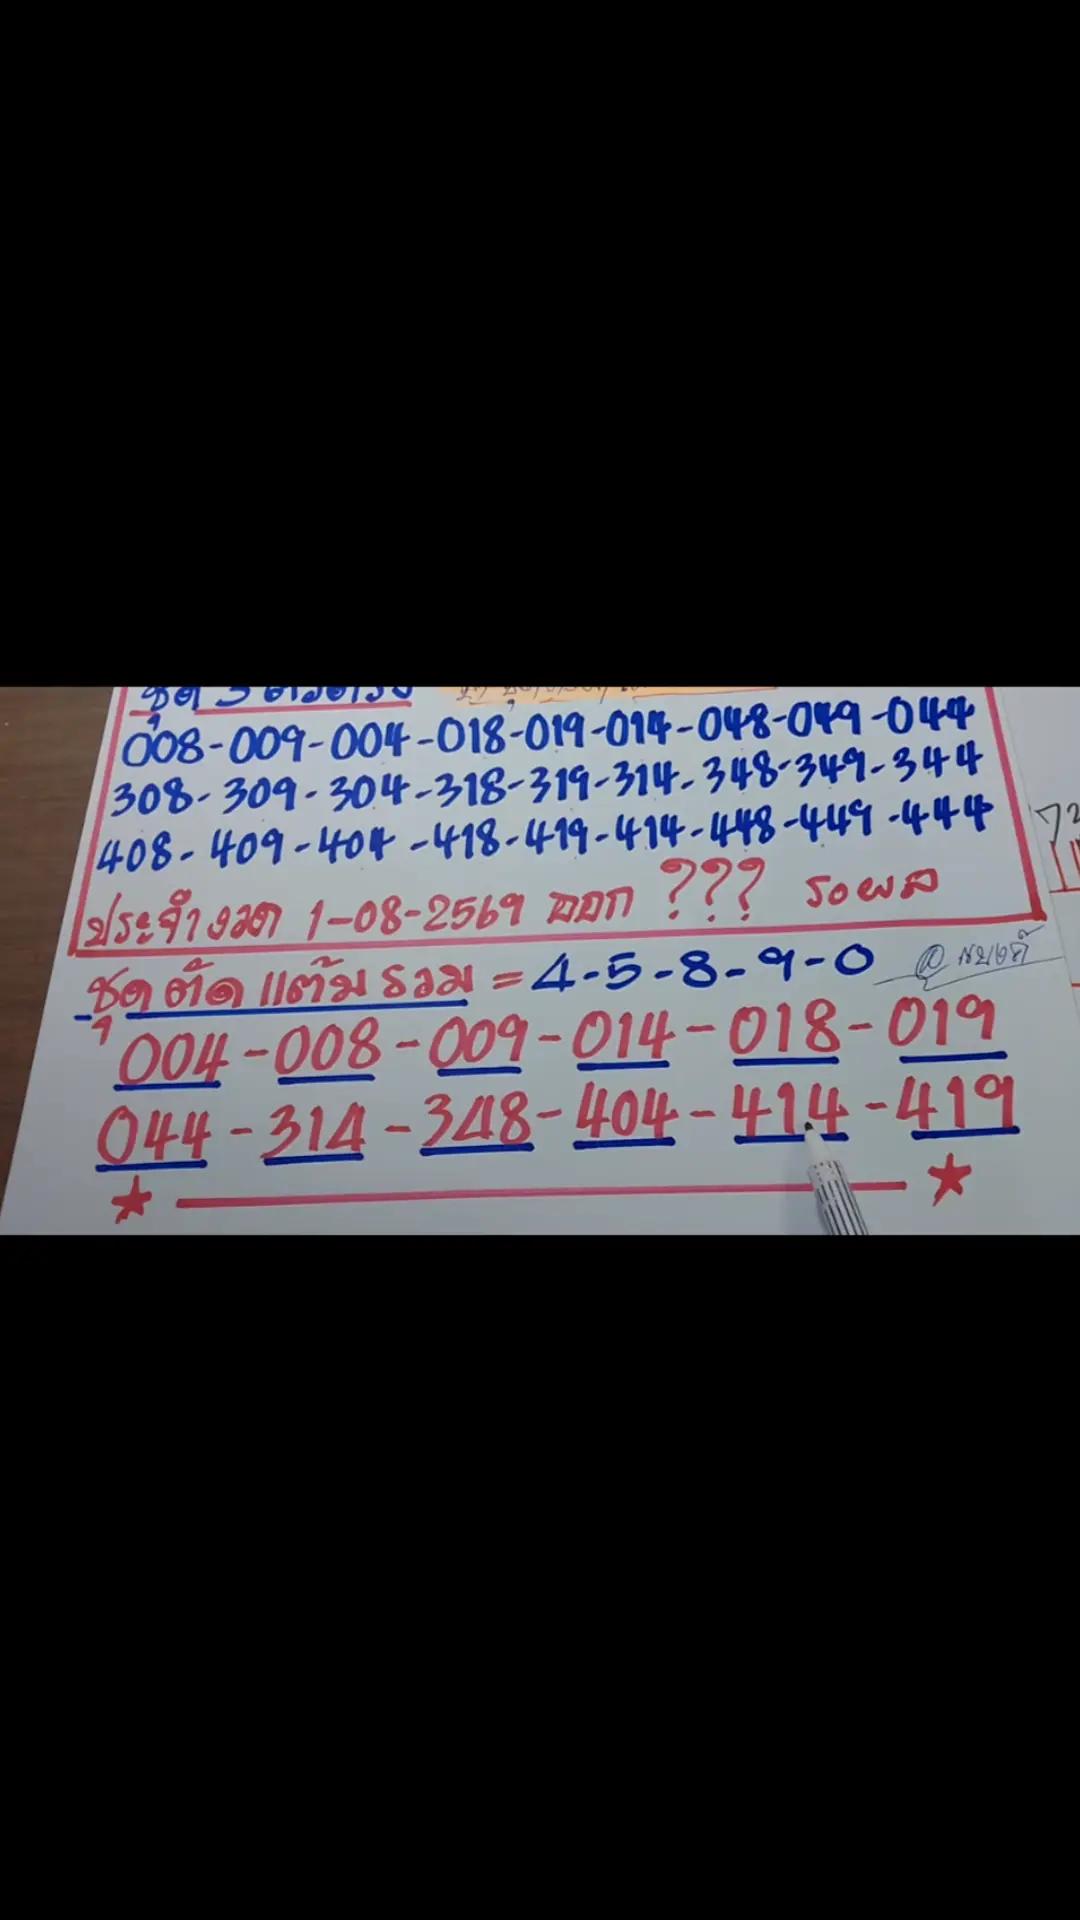 ชุด 3 ตัวตรง
008-009-004-018-019-014-048-049-044
308-309-304-318-319-314-348-349-344
408-409-404-418-419-414-448-449-444
ประจำงวด 1-08-2569 ออก ??? รอผล
ชุด ตัด แต้ม รวม = 4-5-8-9-0
004-008-009-014-018-019
044-314-348-404-414-419